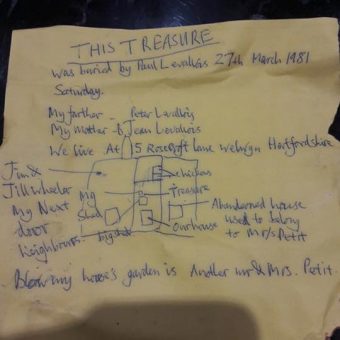 THIS TREASURE
was buried by Paul Levallois 27th March 1981
Saturday.
My farther - Peter Levallois
My mother - Jean Levallois
We live At 15 Roscroft lane Welwyn Hertfordshire
Jim &
Jill Wheeler
My Next
door
Neighbours
My
Shed
big shed
chickens
Treasure
Our house
Abanderned house
used to belong
to Mr/s Petit
Below my house's garden is Another mr & Mrs. Petit.